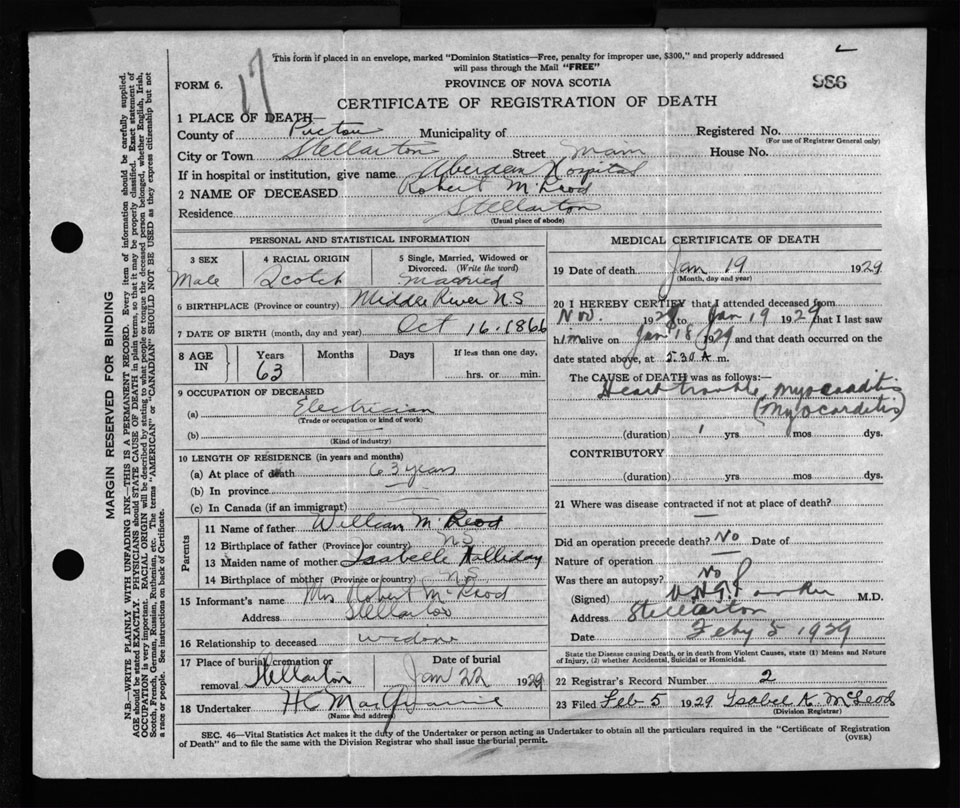 This form if placed in an envelope, marked "Dominion Statistics—Free, penalty for improper use, $300," and properly addressed
will pass through the Mail "FREE"
986
17
FORM 6.
PROVINCE OF NOVA SCOTIA
CERTIFICATE OF REGISTRATION OF DEATH
1 PLACE OF DEATH—
County of Pictou Municipality of Registered No.
(For use of Registrar General only)
City or Town Stellarton Street Main House No.
If in hospital or institution, give name Aberdeen Hospital
2 NAME OF DECEASED Robert McLeod
Residence Stellarton
(Usual place of abode)
PERSONAL AND STATISTICAL INFORMATION
3 SEX 4 RACIAL ORIGIN 5 Single, Married, Widowed or Divorced. (Write the word)
Male Scotch Married
6 BIRTHPLACE (Province or country) Middle River N S
7 DATE OF BIRTH (month, day and year) Oct 16. 1866
8 AGE IN Years Months Days If less than one day,
63 hrs. or min.
9 OCCUPATION OF DECEASED
(a) Electrician
(Trade or occupation or kind of work)
(b)
(Kind of industry)
10 LENGTH OF RESIDENCE (in years and months)
(a) At place of death 63 years
(b) In province
(c) In Canada (if an immigrant)
Parents
11 Name of father William McLeod
12 Birthplace of father (Province or country) N S
13 Maiden name of mother Isabelle Halliday
14 Birthplace of mother (Province or country) N S
15 Informant's name Mrs Robert McLeod
Address Stellarton
16 Relationship to deceased widow
17 Place of burial, cremation or removal Stellarton Date of burial Jan 22 1929
18 Undertaker H C
(Name and address)
MEDICAL CERTIFICATE OF DEATH
19 Date of death Jan 19 1929
(Month, day and year)
20 I HEREBY CERTIFY that I attended deceased from
Nov. 1928 to Jan 19 1929 that I last saw
him alive on Jan 18 1929 and that death occurred on the
date stated above, at 5.30 A m.
The CAUSE of DEATH was as follows:—
Heart trouble, myocarditis
(Myocarditis)
(duration) 1 yrs mos dys.
CONTRIBUTORY
(duration) yrs mos dys.
21 Where was disease contracted if not at place of death?
Did an operation precede death? No Date of
Nature of operation
Was there an autopsy? No
(Signed) M.D.
Address Stellarton
Date Feby 5 1929
State the Disease causing Death, or in death from Violent Causes, state (1) Means and Nature
of Injury, (2) whether Accidental, Suicidal or Homicidal.
22 Registrar's Record Number 2
23 Filed Feb 5 1929 Isabel K. McLeod
(Division Registrar)
SEC. 46—Vital Statistics Act makes it the duty of the Undertaker or person acting as Undertaker to obtain all the particulars required in the "Certificate of Registration
of Death" and to file the same with the Division Registrar who shall issue the burial permit.
(OVER)
MARGIN RESERVED FOR BINDING
N.B.—WRITE PLAINLY WITH UNFADING INK—THIS IS A PERMANENT RECORD. Every item of information should be carefully supplied.
AGE should be stated EXACTLY. PHYSICIANS should STATE CAUSE OF DEATH in plain terms, so that it may be properly classified. Exact statement of
OCCUPATION is very important. RACIAL ORIGIN will be described by stating to what people or tongue the deceased person belonged, whether English, Irish,
Scotch, French, German, Russian, Ruthenian, etc. The terms "AMERICAN" or "CANADIAN" SHOULD NOT BE USED as they express citizenship but not
a race or people. See instructions on back of Certificate.